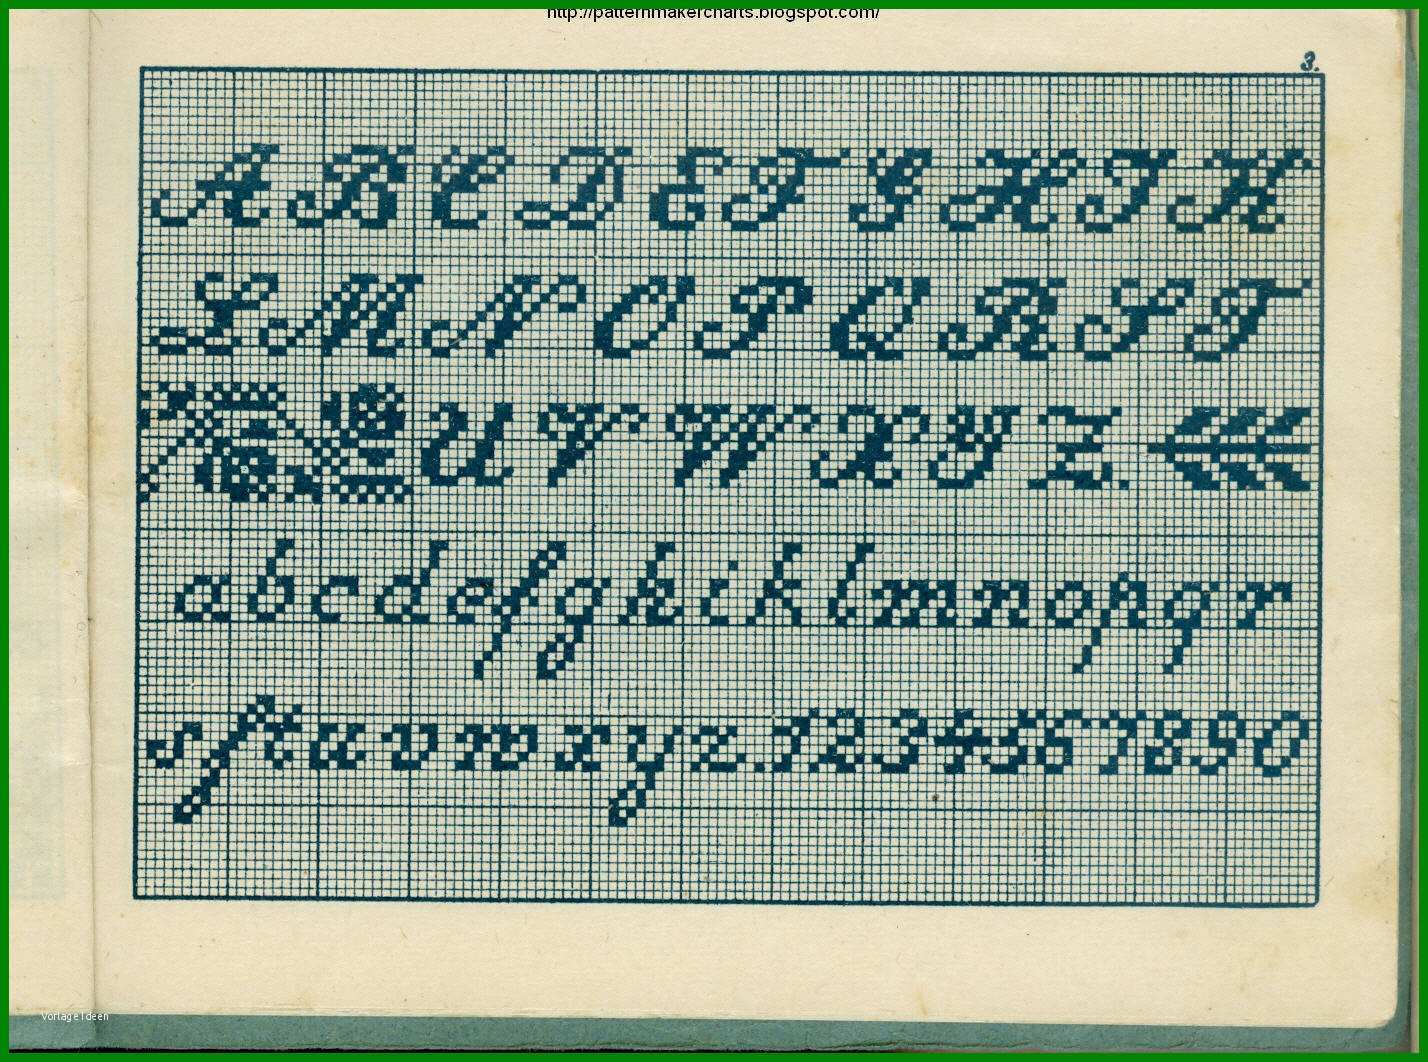 http://patternmakercharts.blogspot.com/
3.
A B C D E F G H I K
L M N O P Q R S T
U V W X Y Z.
a b c d e f g h i k l m n o p q r
s t u v w x y z . 1 2 3 4 5 6 7 8 9 0
Vorlage Ideen